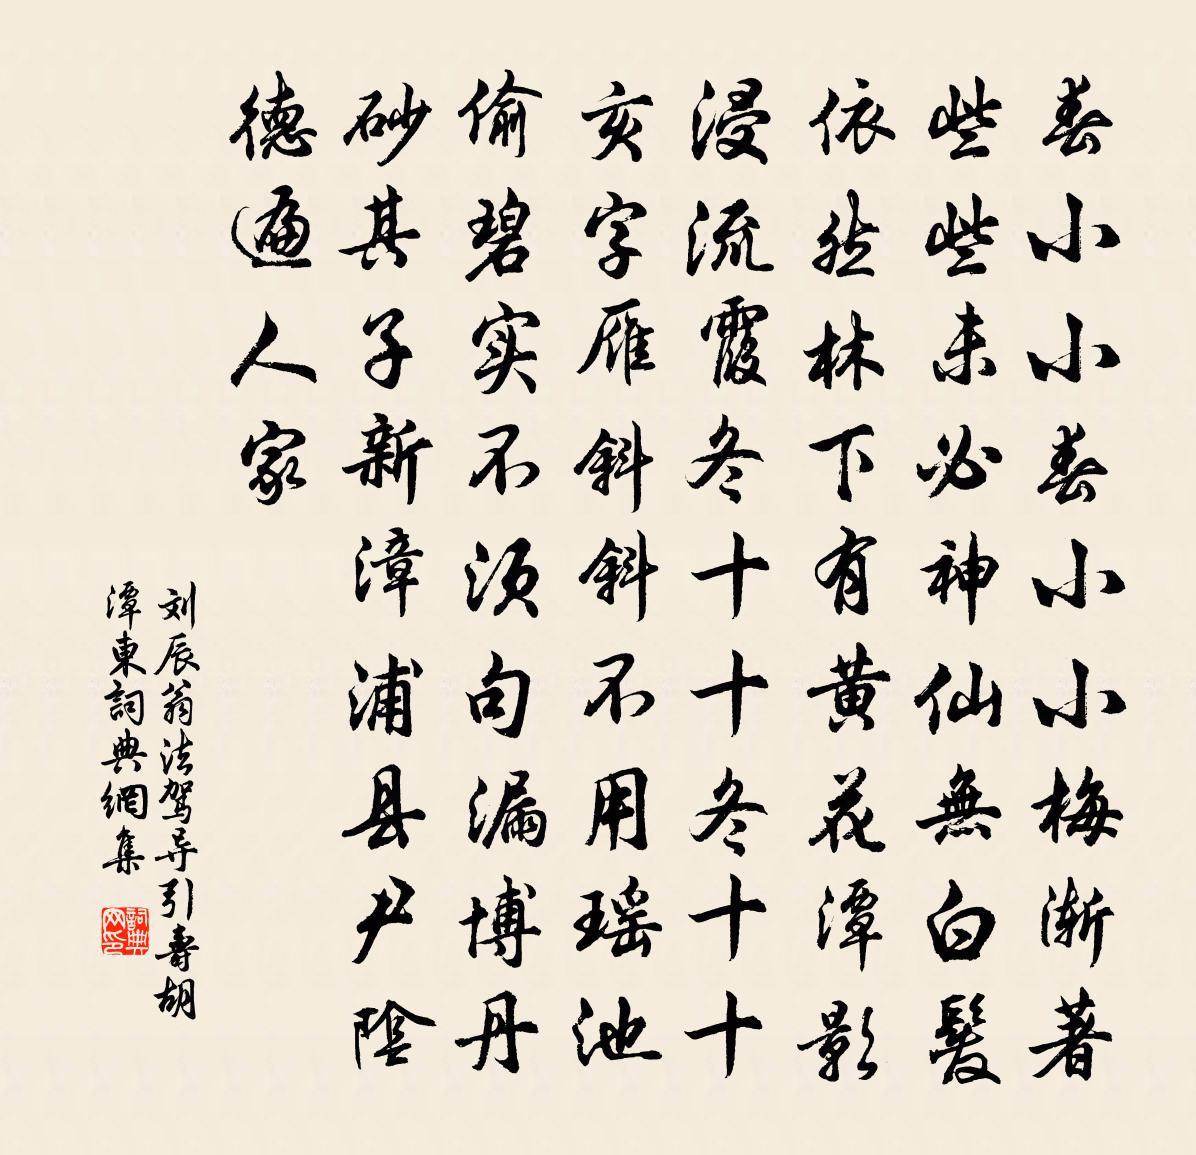 春小小春小小梅渐著
些些未必神仙無白髮
依然林下有黄花潭影
浸流霞冬十十冬十十
亥字雁斜斜不用瑶池
偷碧实不须句漏博丹
砂其子新漳浦县尹陰
德遍人家
刘辰翁法驾导引壽胡
潭東詞典網集
詞典网印